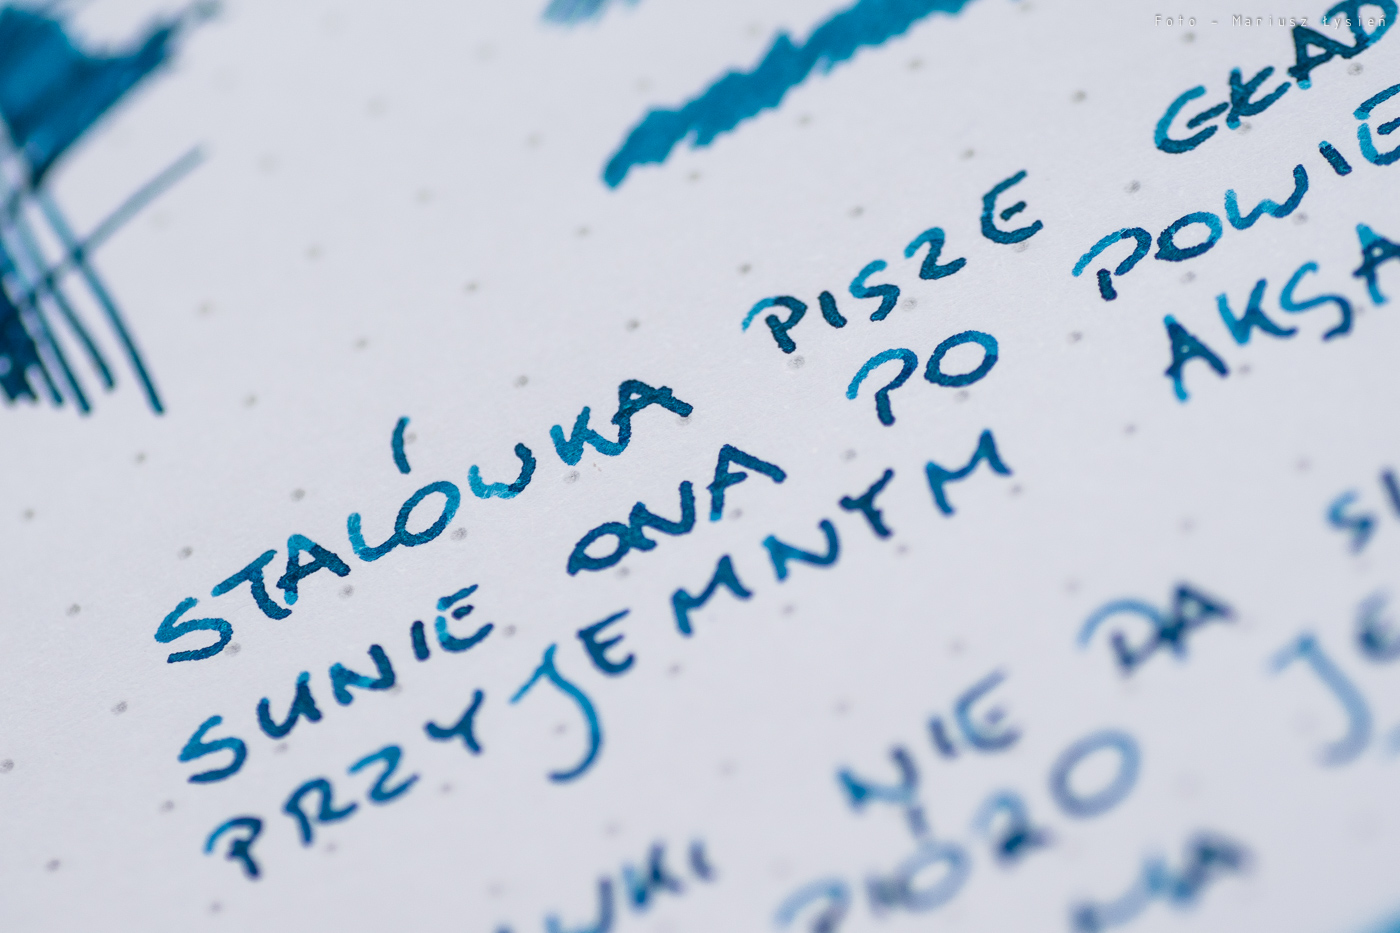 Foto - Mariusz Łysień
STALÓWKA PISZE GŁAD
SUNIE ONA PO POWIE
PRZYJEMNYM AKSA
NIE DA
WKI PIÓRO JE